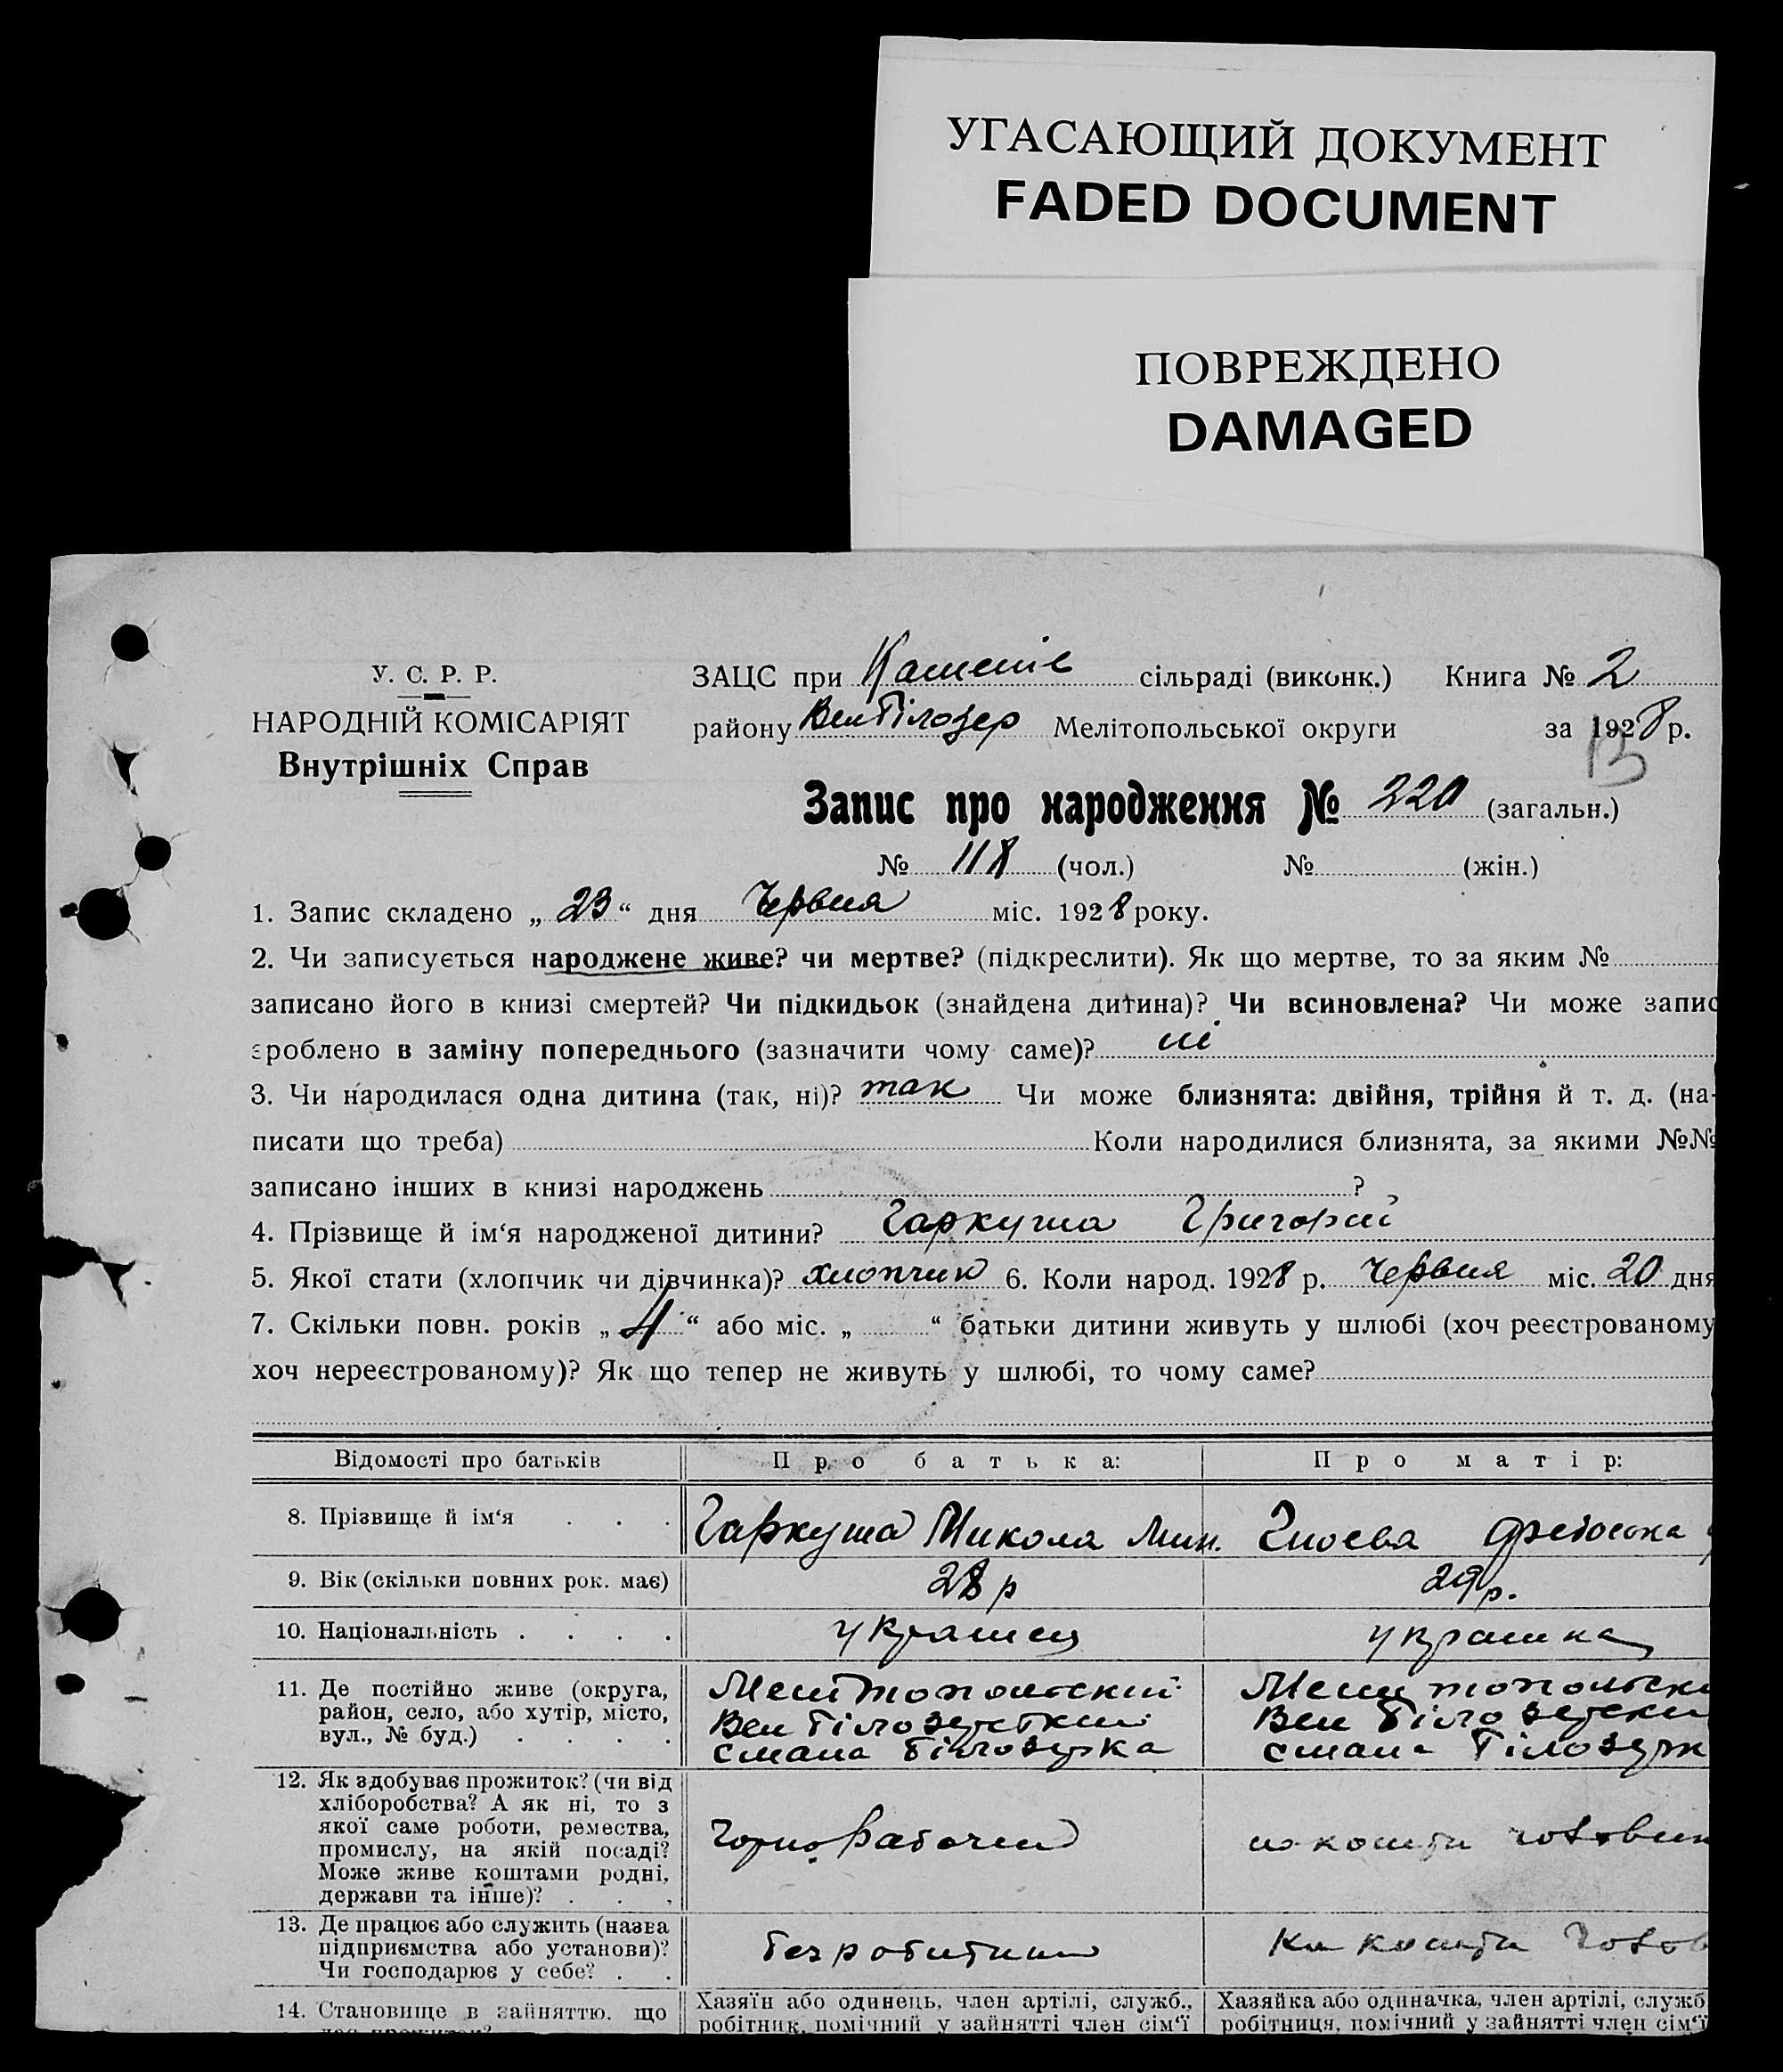 УГАСАЮЩИЙ ДОКУМЕНТ
FADED DOCUMENT
ПОВРЕЖДЕНО
DAMAGED
У. С. Р. Р.
НАРОДНІЙ КОМІСАРІЯТ
Внутрішніх Справ
ЗАЦС при Каменів сільраді (виконк.) Книга № 2
району Вел Білозер Мелітопольської округи за 1928 р.
13
Запис про народження № 220 (загальн.)
№ 118 (чол.) № (жін.)
1. Запис складено „ 23 “ дня Червня міс. 1928 року.
2. Чи записується народжене живе? чи мертве? (підкреслити). Як що мертве, то за яким №
записано його в книзі смертей? Чи підкидьок (знайдена дитина)? Чи всиновлена? Чи може запис
зроблено в заміну попереднього (зазначити чому саме)? ні
3. Чи народилася одна дитина (так, ні)? так Чи може близнята: двійня, трійня й т. д. (на-
писати що треба) Коли народилися близнята, за якими №№
записано інших в книзі народжень ?
4. Прізвище й ім‘я народженої дитини? Гаркуша Григорій
5. Якої стати (хлопчик чи дівчинка)? хлопчик 6. Коли народ. 1928 р. Червня міс. 20 дня
7. Скільки повн. років „ 4 “ або міс. „ “ батьки дитини живуть у шлюбі (хоч реєстрованому
хоч нереєстрованому)? Як що тепер не живуть у шлюбі, то чому саме?
Відомості про батьків Про батька: Про матір:
8. Прізвище й ім‘я Гаркуша Микола Мин. Гноева
9. Вік (скільки повних рок. має) 28 р 29 р.
10. Національність українец украинка
11. Де постійно живе (округа,
район, село, або хутір, місто,
вул., № буд.)
Мелитопольский
Вел Білозерский
с мала Білозерка
Мелитопольски
Вел Білозерски
с мала Білозерк
12. Як здобуває прожиток? (чи від
хліборобства? А як ні, то з
якої саме роботи, ремества,
промислу, на якій посаді?
Може живе коштами родні,
держави та інше)?
Чернорабочий
кошти
13. Де працює або служить (назва
підприємства або установи)?
Чи господарює у себе?
кошти
14. Становище в зайняттю, що
дає прожиток?
Хазяїн або одинець, член артілі, служб.,
робітник, помічний у зайнятті член сім‘ї
Хазяйка або одиначка, член артілі, служб
робітниця, помічний у зайнятті член сім‘ї